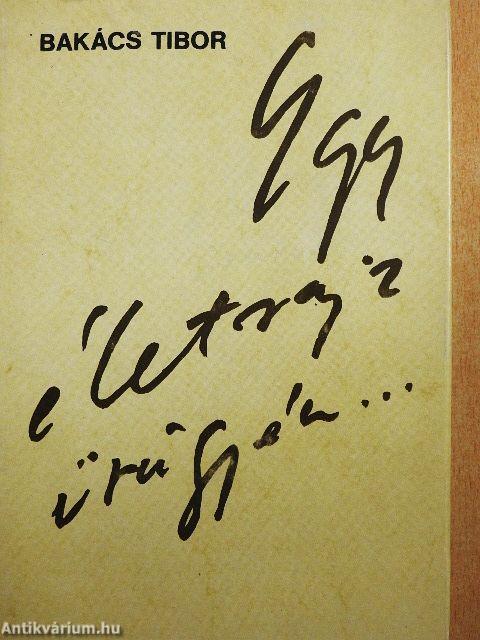 BAKÁCS TIBOR
Egy
életrajz
ürügyén...
Antikvárium.hu